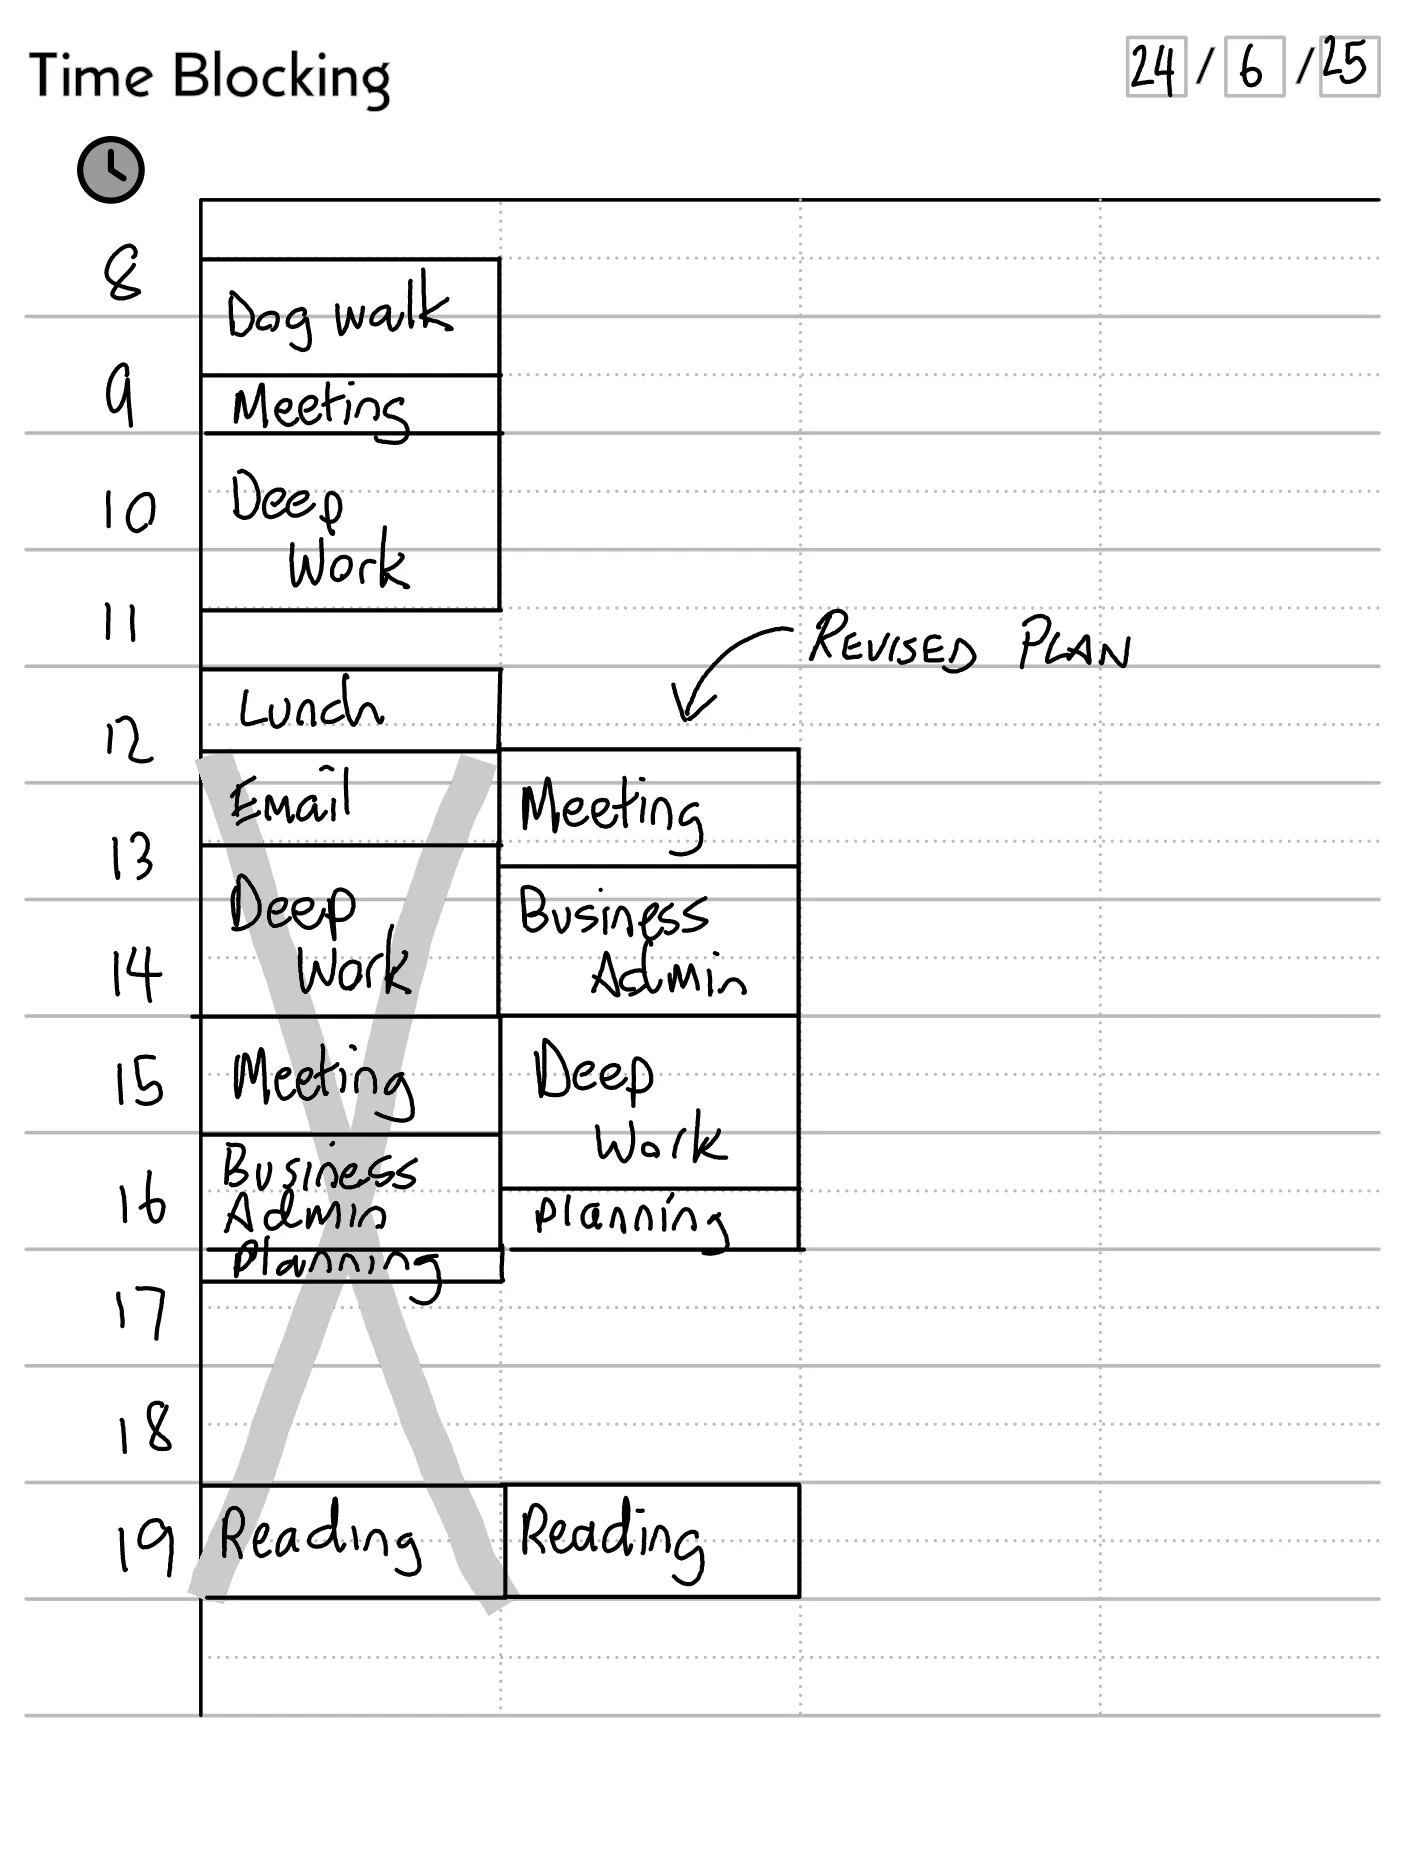 Time Blocking
24 / 6 / 25
8
Dog walk
9
Meeting
10
Deep
Work
11
REVISED PLAN
Lunch
12
Email
Meeting
13
Deep
Work
Business
Admin
14
15
Meeting
Deep
Work
Business
Admin
16
Planning
Planning
17
18
19
Reading
Reading